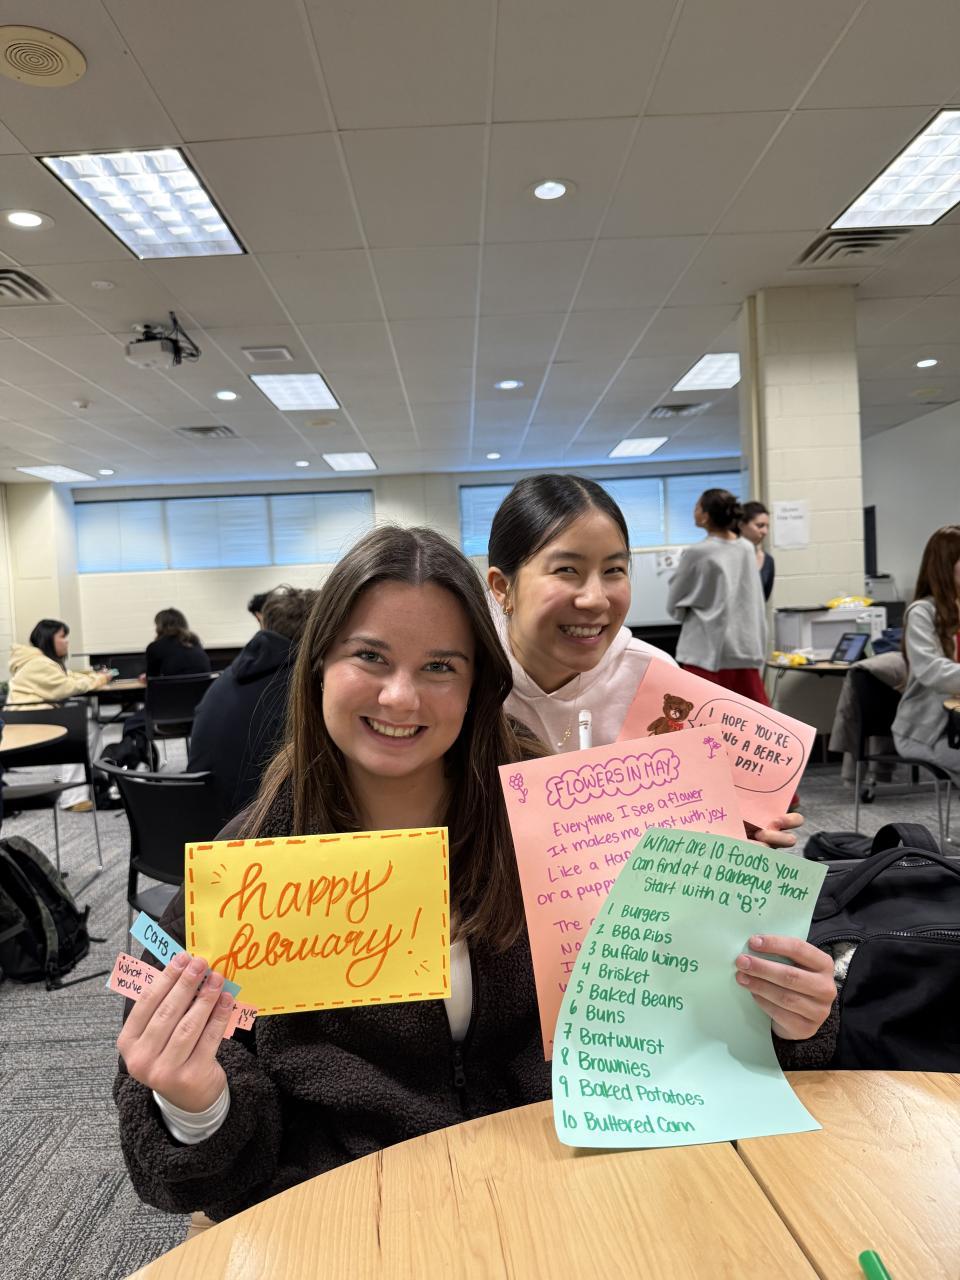 happy
february!
Cats
What is
you've
I HOPE YOU'RE
A BEAR-Y
DAY!
FLOWERS IN MAY
Everytime I see a flower
It makes me burst with joy
Like a
or a puppy
The
What are 10 foods you
can find at a Barbeque that
start with a "B"?
1 Burgers
2 BBQ Ribs
3 Buffalo Wings
4 Brisket
5 Baked Beans
6 Buns
7 Bratwurst
8 Brownies
9 Baked Potatoes
10 Buttered Corn